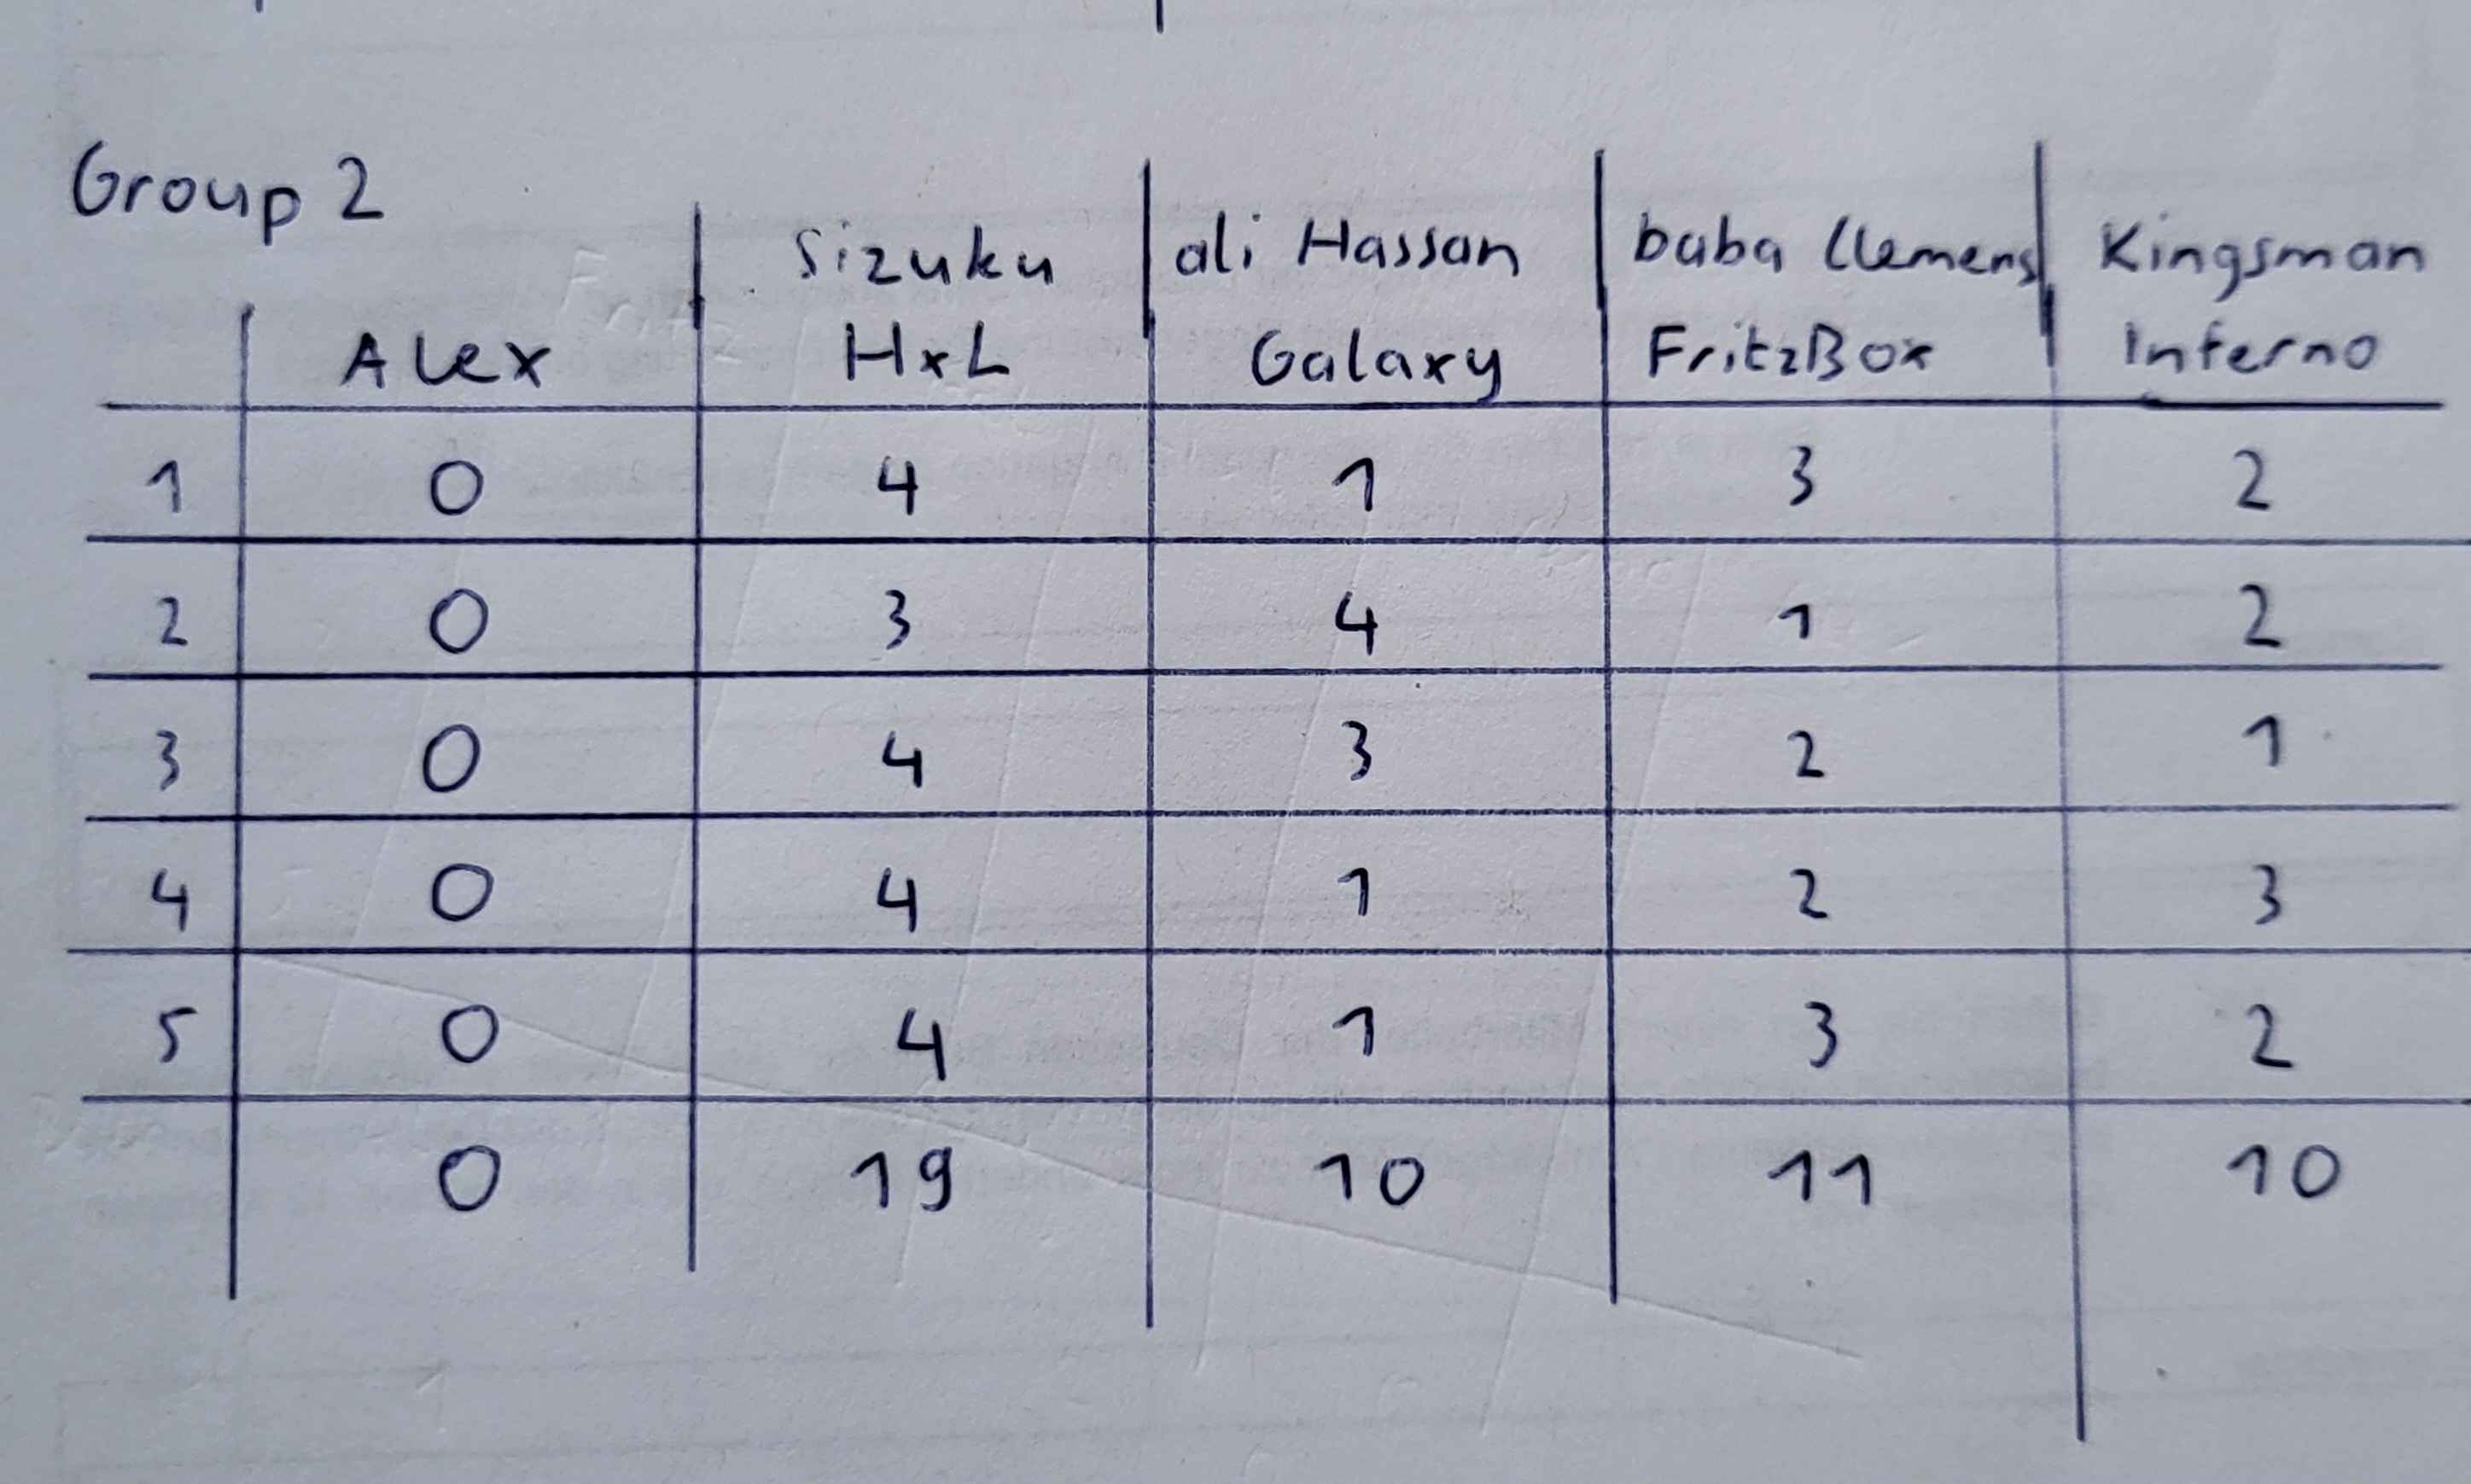 Group 2
Sizuku ali Hassan baba Clemens Kingsman
Alex HxL Galaxy FritzBox Inferno
1 0 4 1 3 2
2 0 3 4 1 2
3 0 4 3 2 1
4 0 4 1 2 3
5 0 4 1 3 2
0 19 10 11 10